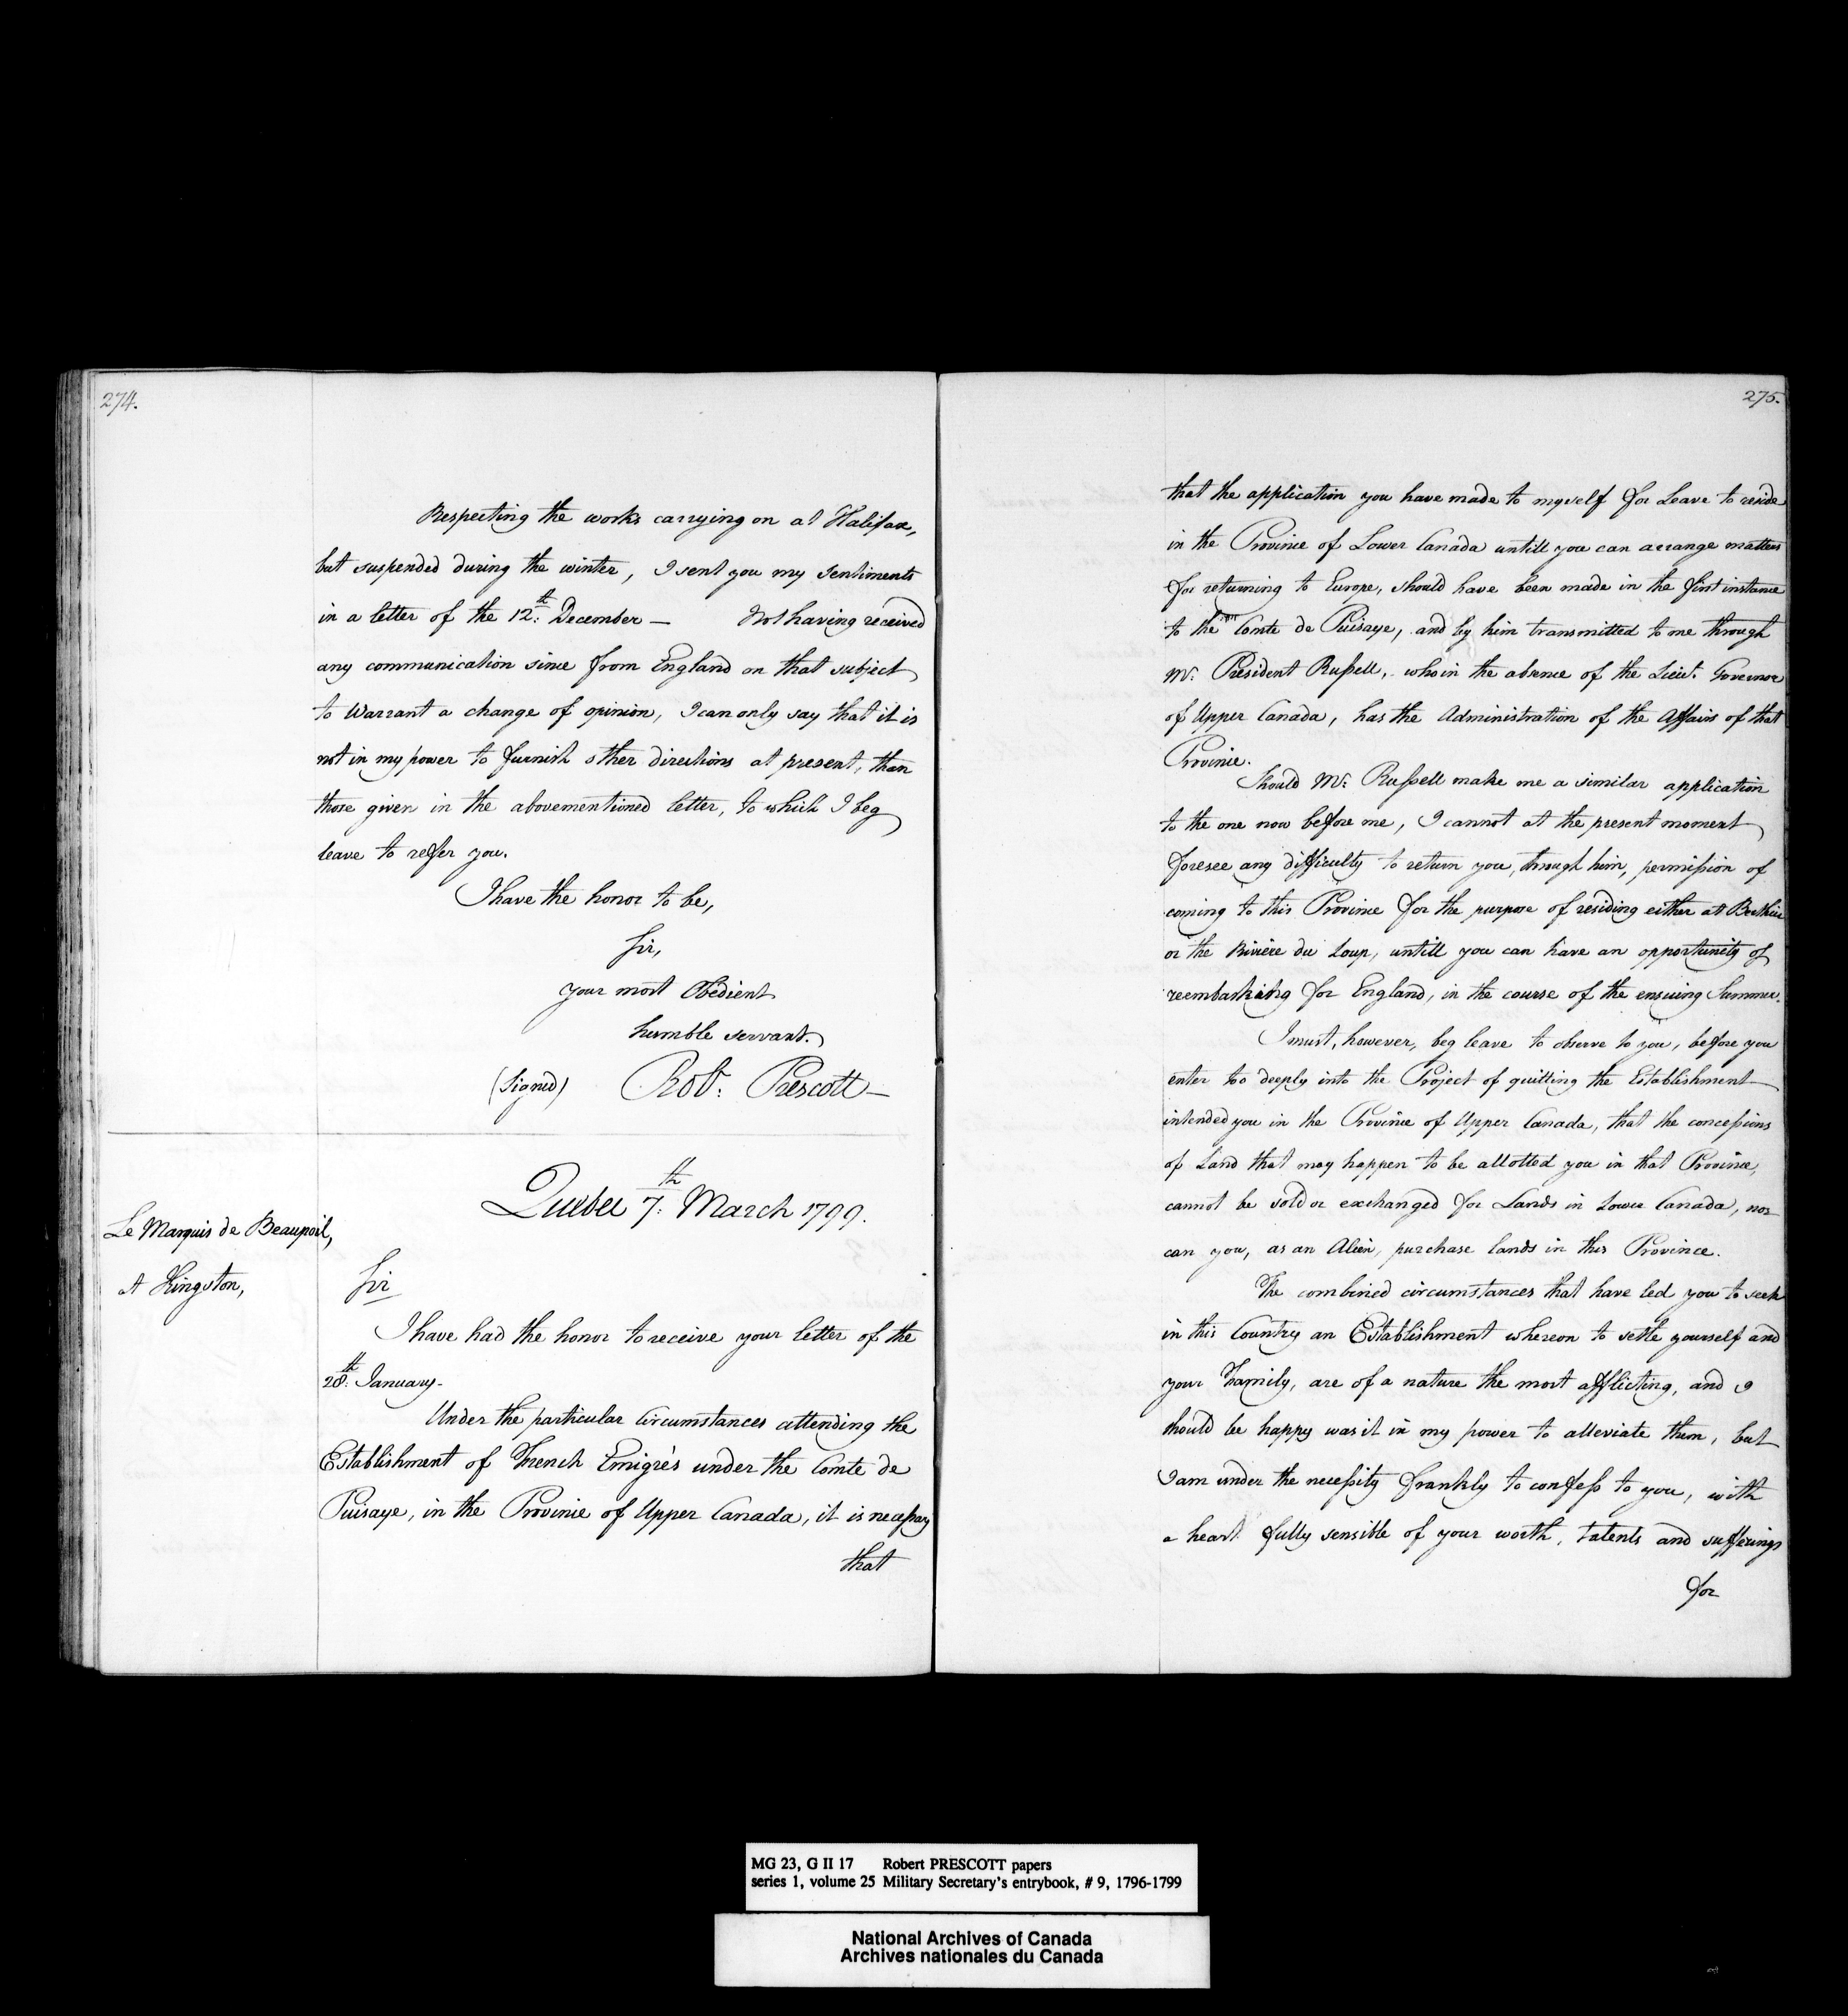 274.
Respecting the works carrying on at Halifax,
but suspended during the winter, I sent you my Sentiments
in a letter of the 12th. December — Not having received
any communication since from England on that subject
to Warrant a change of opinion, I can only say that it is
not in my power to furnish other directions at present, than
those given in the abovementioned letter, to which I beg
leave to refer you.
I have the honor to be,
Sir,
your most Obedient
humble servant.
(Signed) Robt. Prescott —
Quebec 7th. March 1799.
Le Marquis de Beaupoil,
at Kingston,
Sir
I have had the honor to receive your letter of the
28th. January.
Under the particular Circumstances attending the
Establishment of French Emigrés under the Comte de
Puisaye, in the Province of Upper Canada, it is necessary
that
275.
that the application you have made to myself for Leave to reside
in the Province of Lower Canada untill you can arrange matters
for returning to Europe, should have been made in the first instance
to the Comte de Puisaye, and by him transmitted to me through
Mr. President Russell, who in the absence of the Lieut. Governor
of Upper Canada, has the Administration of the Affairs of that
Province.
Should Mr. Russell make me a similar application
to the one now before me, I cannot at the present moment
foresee any difficulty to return you, through him, permission of
coming to this Province for the purpose of residing either at Berthier
or the Rivière du Loup, untill you can have an opportunity of
reembarking for England, in the course of the ensuing Summer.
I must, however, beg leave to observe to you, before you
enter too deeply into the Project of quitting the Establishment
intended you in the Province of Upper Canada, that the concessions
of Land that may happen to be allotted you in that Province,
cannot be sold or exchanged for Lands in Lower Canada, nor
can you, as an Alien, purchase lands in this Province.
The combined circumstances that have led you to seek
in this Country an Establishment whereon to settle yourself and
your Family, are of a nature the most afflicting, and I
should be happy was it in my power to alleviate them, but
I am under the necessity frankly to confess to you, with
a heart fully sensible of your worth, talents and sufferings
for
MG 23, G II 17 Robert PRESCOTT papers
series 1, volume 25 Military Secretary's entrybook, # 9, 1796-1799
National Archives of Canada
Archives nationales du Canada